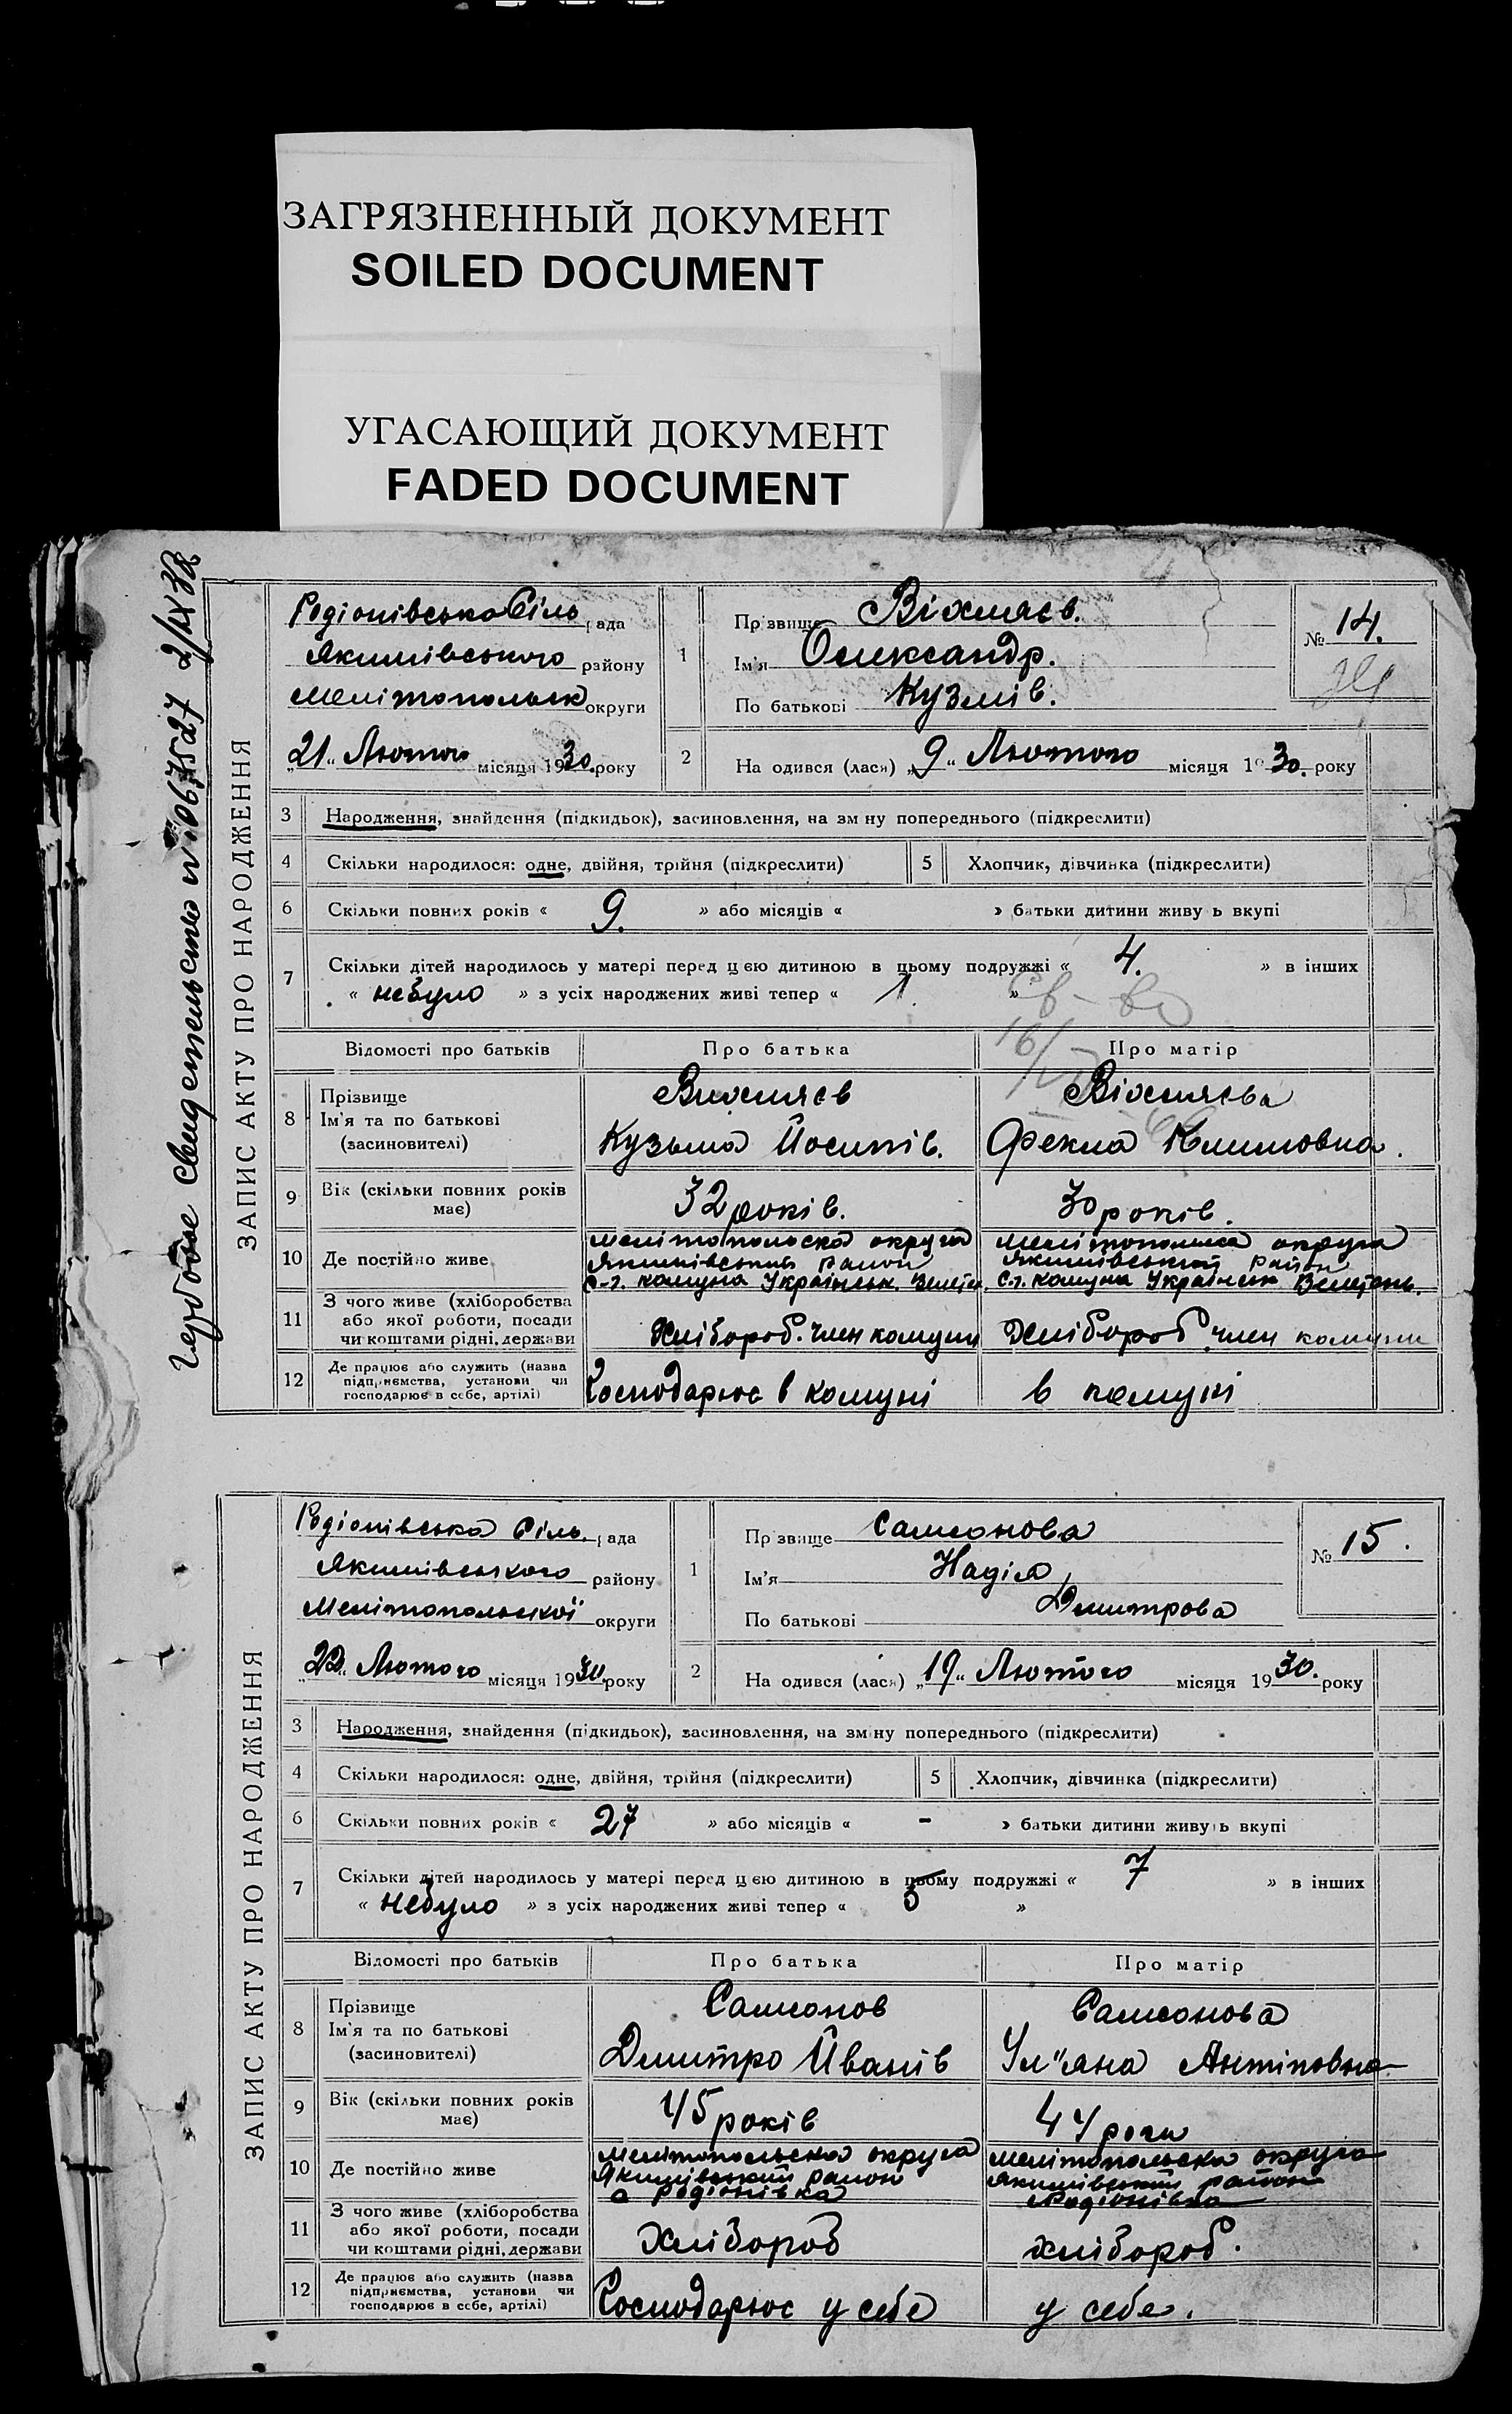 ЗАГРЯЗНЕННЫЙ ДОКУМЕНТ
SOILED DOCUMENT
УГАСАЮЩИЙ ДОКУМЕНТ
FADED DOCUMENT
Гербовое свидетельство № 0675527 2/IX 38
ЗАПИС АКТУ ПРО НАРОДЖЕННЯ
Родіонівська Сіль рада
Якимівського району
Мелітопольск округи
„21“ Лютого місяця 1930. року
1
Прізвище Віхляєв.
Ім'я Олександр.
По батькові Кузмів.
№ 14.
2
На одився (лася) „9“ Лютого місяця 1930. року
3 Народження, знайдення (підкидьок), засиновлення, на зм ну попереднього (підкреслити)
4 Скільки народилося: одне, двійня, трійня (підкреслити) 5 Хлопчик, дівчинка (підкреслити)
6 Скільки повних років « 9. » або місяців « » батьки дитини живу ь вкупі
7 Скільки дітей народилось у матері перед цією дитиною в цьому подружжі « 4. » в інших
« небуло » з усіх народжених живі тепер « 1. »
Св-во
16/
Відомості про батьків Про батька Про матір
8 Прізвище
Ім'я та по батькові
(засиновителі)
Вихляєв
Кузьма Йосипів.
Віхляєва
Фекла Климовна.
9 Вік (скільки повних років має)
32 років.
30 років.
10 Де постійно живе
Мелітопольска округа
Якимівський район
с.-г. комуна Українськ. Велетн.
Мелітопольска округа
Якимівський район
с.г. комуна Українськ Велетень.
11 З чого живе (хліборобства
або якої роботи, посади
чи коштами рідні, держави
Хлібороб. член комуни
Хлібороб. член комуни
12 Де працює або служить (назва
підприємства, установи чи
господарює в себе, артілі)
Господарює в комуні
в комуні
ЗАПИС АКТУ ПРО НАРОДЖЕННЯ
Родіонівська Сіль. рада
Якимівського району
Мелітопольської округи
„22“ Лютого місяця 1930. року
1
Пр звище Самсонова
Ім'я Надія
По батькові Дмитрова
№ 15.
2
На одився (лася) „19“ Лютого місяця 1930. року
3 Народження, знайдення (підкидьок), засиновлення, на зм ну попереднього (підкреслити)
4 Скільки народилося: одне, двійня, трійня (підкреслити) 5 Хлопчик, дівчинка (підкреслити)
6 Скільки повних років « 27 » або місяців « - » батьки дитини живу ь вкупі
7 Скільки дітей народилось у матері перед цією дитиною в цьому подружжі « 7 » в інших
« небуло » з усіх народжених живі тепер « 5 »
Відомості про батьків Про батька Про матір
8 Прізвище
Ім'я та по батькові
(засиновителі)
Самсонов
Дмитро Йванів
Самсонова
Ул"яна Антіповна
9 Вік (скільки повних років має)
45 років
44 роки
10 Де постійно живе
Мелітопольска округа
Якимівський район
с Родіонівка
Мелітопольска округа
Якимівський район
с Родіонівка
11 З чого живе (хліборобства
або якої роботи, посади
чи коштами рідні, держави
Хлібороб
хлібороб.
12 Де працює або служить (назва
підприємства, установи чи
господарює в себе, артілі)
Господарює у себе
у себе.